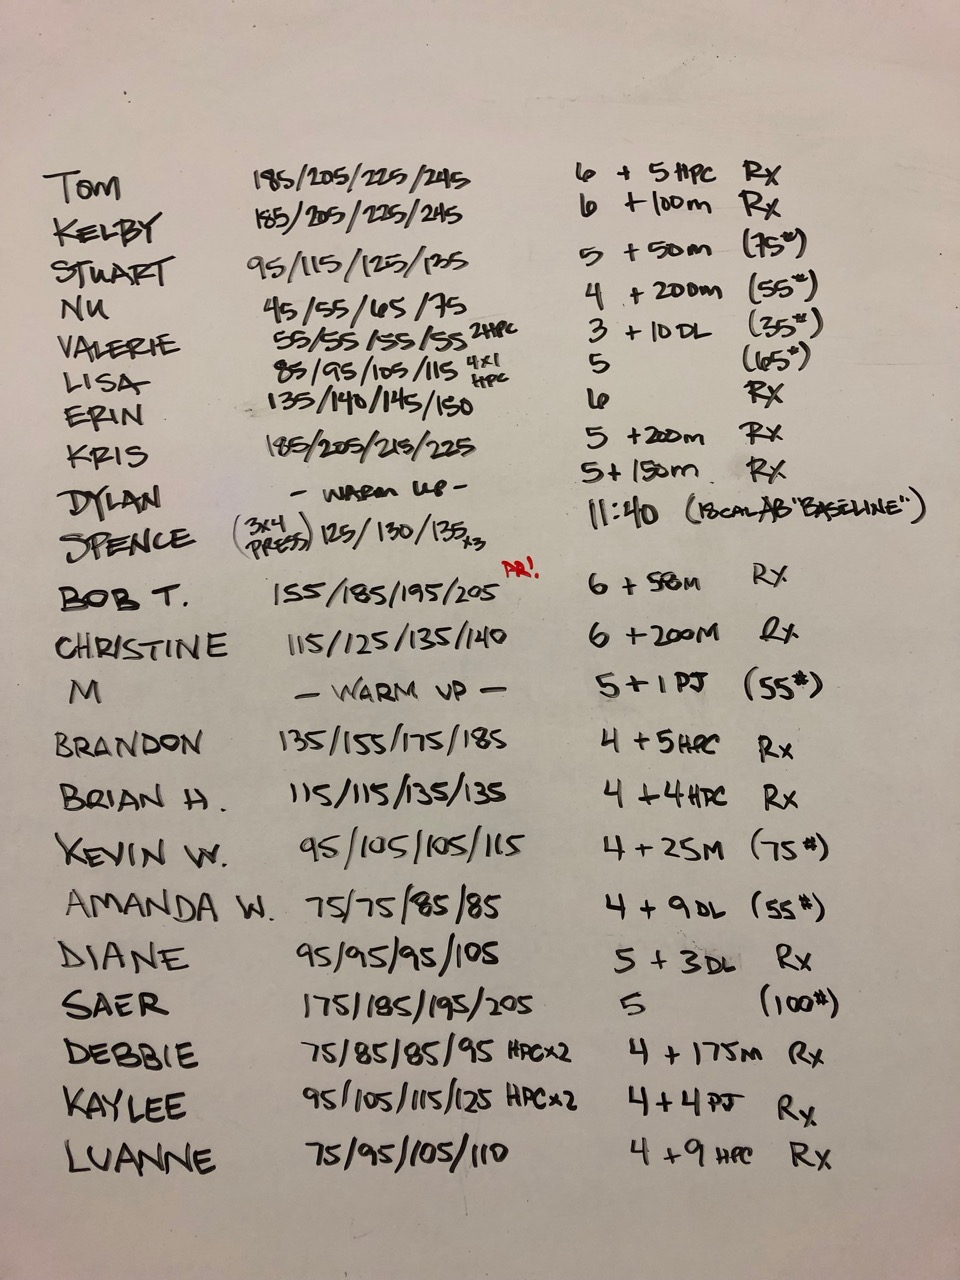 Tom 185/205/225/245 6 + 5 HPC Rx
KELBY 185/205/225/245 6 + 100m Rx
STUART 95/115/125/135 5 + 50m (75#)
NU 45/55/65/75 4 + 200m (55#)
VALERIE 55/55/55/55 2HPC 3 + 10 DL (35#)
LISA 85/95/105/115 4x1 HPC 5 (65#)
ERIN 135/140/145/150 6 Rx
KRIS 185/205/215/225 5 + 200m Rx
DYLAN - WARM UP - 5 + 150m Rx
SPENCE (3x4 PRESS) 125/130/135 x3 11:40 (18 CAL AB "BASELINE")
BOB T. 155/185/195/205 PR! 6 + 58M Rx
CHRISTINE 115/125/135/140 6 + 200M Rx
M - WARM UP - 5 + 1 PJ (55#)
BRANDON 135/155/175/185 4 + 5 HPC Rx
BRIAN H. 115/115/135/135 4 + 4 HPC Rx
KEVIN W. 95/105/105/115 4 + 25M (75#)
AMANDA W. 75/75/85/85 4 + 9 DL (55#)
DIANE 95/95/95/105 5 + 3 DL Rx
SAER 175/185/195/205 5 (100#)
DEBBIE 75/85/85/95 HPCx2 4 + 175M Rx
KAYLEE 95/105/115/125 HPCx2 4 + 4 PJ Rx
LUANNE 75/95/105/110 4 + 9 HPC Rx